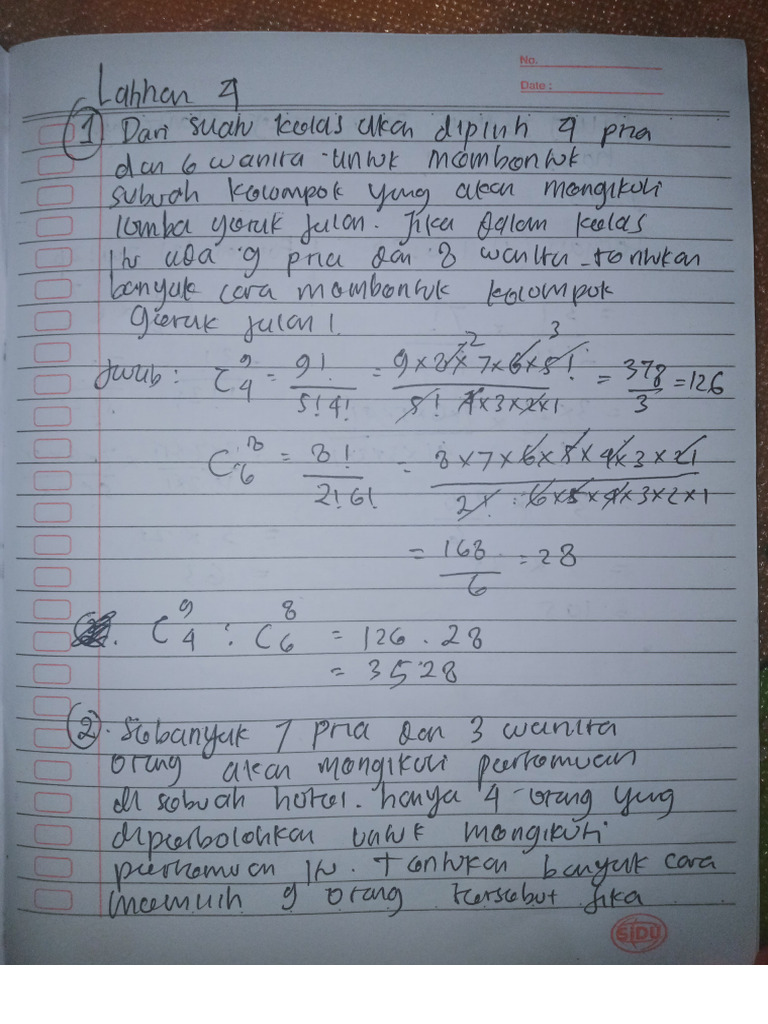 No.
Date :
Latihan 4
1 Dari suatu kelas akan dipilih 4 pria
dan 6 wanita untuk membentuk
sebuah kelompok yang akan mengikuti
lomba gerak jalan. Jika dalam kelas
itu ada 9 pria dan 8 wanita tentukan
banyak cara membentuk kelompok
gerak jalan !
Jwab : C 9 4 = 9! / 5! 4! = 9 × 8 × 7 × 6 × 5 ! / 5 ! 4 × 3 × 2 × 1 = 378 / 3 = 126
C 8 6 = 8 ! / 2! 6! = 8 × 7 × 6 × 5 × 4 × 3 × 21 / 21 . 6 × 5 × 4 × 3 × 2 × 1
= 168 / 6 = 28
. C 9 4 : C 8 6 = 126 . 28
= 3528
2. Sebanyak 7 pria dan 3 wanita
orang akan mengikuti pertemuan
di sebuah hotel. hanya 4 orang yang
diperbolehkan untuk mengikuti
pertemuan itu. Tentukan banyak cara
memilih 9 orang tersebut jika
SIDU